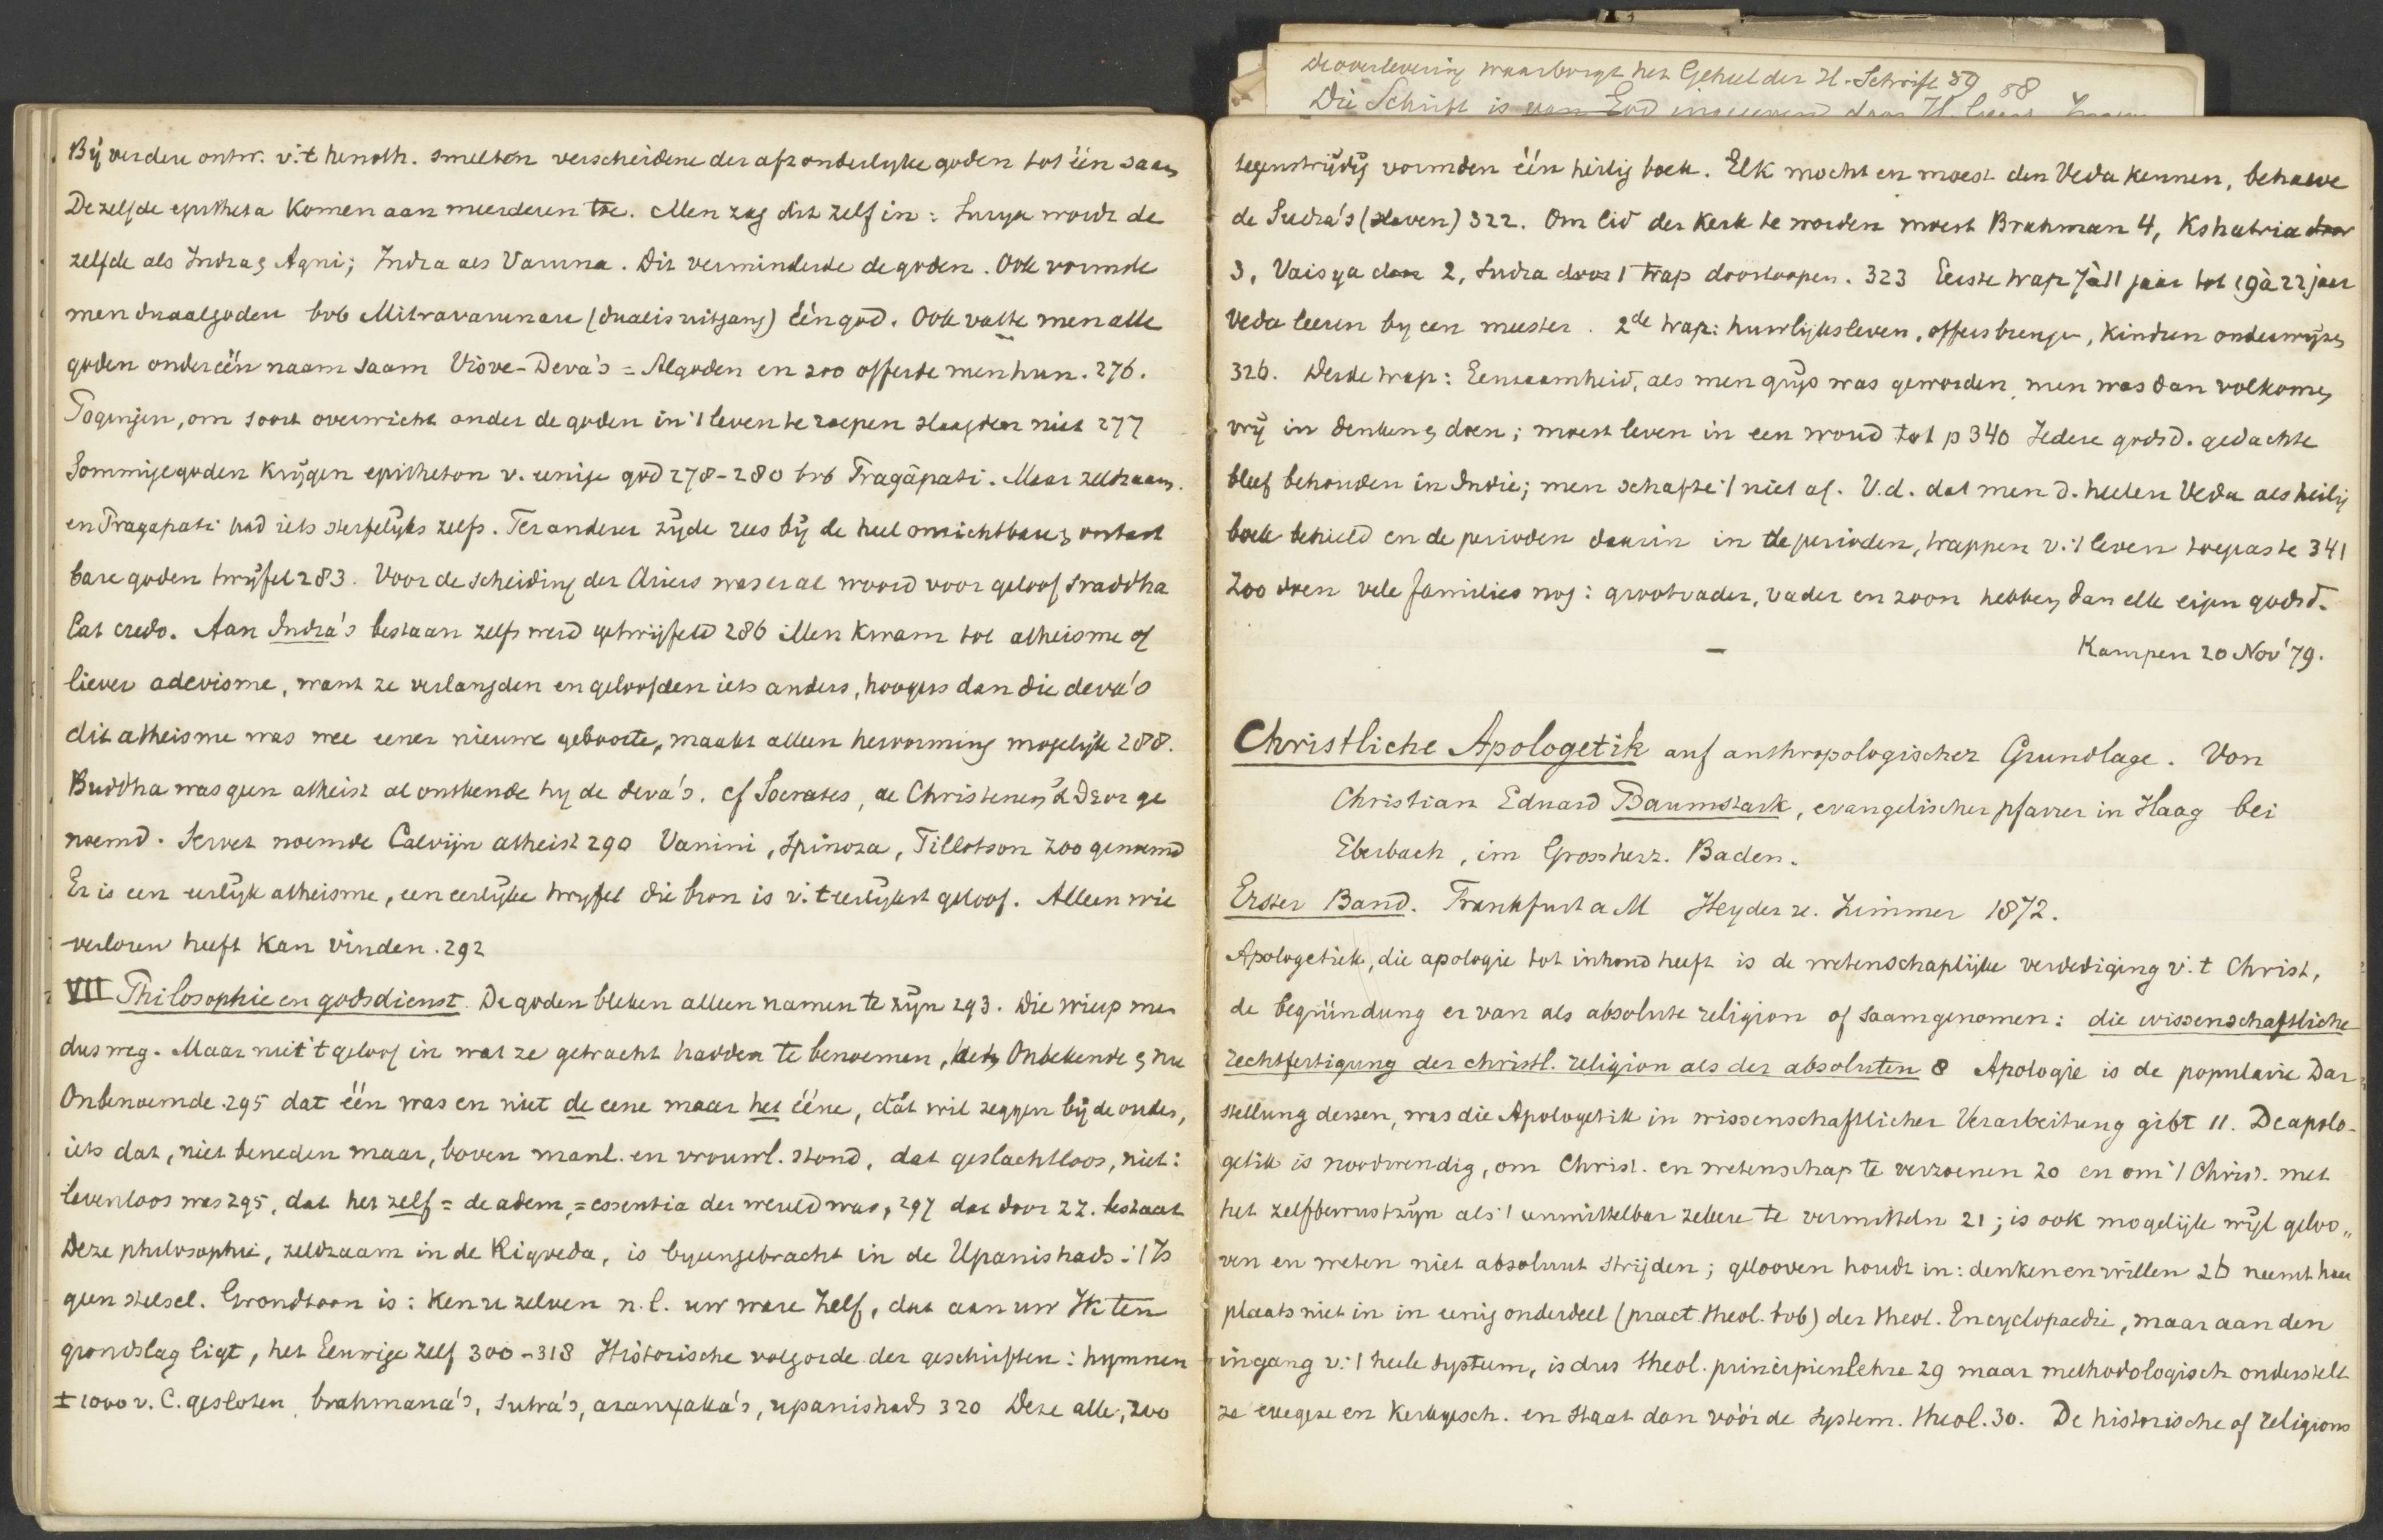 Bij verdere ontw. v.'t henoth. smelten verscheidene der afzonderlijke goden tot één saam
Dezelfde epitheta komen aan meerderen toe. Men zag dit zelf in: Surya wordt de
zelfde als Indra & Agni; Indra als Varuna. Dit verminderde de goden. Ook vormde
men duaalgoden bvb Mitravarunau (dualis uitgang) één god. Ook vatte men alle
goden onder één naam saam Visve-Deva's = Algoden en zoo offerde men hun. 276.
Pogingen, om soort overwicht onder de goden in 't leven te roepen slaagden niet 277
Sommige goden krijgen epitheton v. eenige god 278-280 bvb Pragâpati. Maar zeldzaam.
en Pragapati had iets sterfelijks zelfs. Ter anderer zijde rees bij de heel onzichtbare & ontast
bare goden twijfel 283. Voor de scheiding der Ariers was er al woord voor geloof sraddha
lat credo. Aan Indra's bestaan zelfs werd getwijfeld 286 Men kwam tot atheisme of
liever adevisme, want ze verlangden en geloofden iets anders, hoogers dan die deva's
dit atheisme was wee eener nieuwe geboorte, maakt alleen hervorming mogelijk 288.
Buddha was geen atheist al ontkende hij de deva's. cf Socrates, de Christenen ἄθεοι ge
noemd. Servet noemde Calvijn atheist 290 Vanini, Spinoza, Tillotson zoo genoemd
Er is een eerlijk atheisme, een eerlijke twijfel die bron is v. 't eerlijkst geloof. Alleen wie
verloren heeft kan vinden. 292
VII Philosophie en godsdienst. De goden bleken alleen namen te zijn 293. Die wierp men
dus weg. Maar niet 't geloof in wat ze getracht hadden te benoemen, het Onbekende & nu
Onbenoemde 295 dat één was en niet de eene maar het ééne, dát wil zeggen bij de ouden,
iets dat, niet beneden maar, boven manl. en vrouwl. stond, dat geslachtloos, niet:
levenloos was 295, dat het zelf = de adem, = essentia der wereld was, 297 dat door zz. bestaat
Deze philosophie, zeldzaam in de Rigveda, is byeengebracht in de Upanishads: 't Is
geen stelsel. Grondtoon is: Ken u zelven n.l. uw ware Zelf, dat aan uw Ik ten
grondslag ligt, het Eeuwige Zelf 300-318 Historische volgorde der geschriften: hymnen
± 1000 v. C. gesloten, brahmana's, sutra's, aranyaka's, upanishads 320 Deze alle, zoo
De overlevering waarborgt het Geheel der H. Schrift 59 88
Die Schrift is van God ingegeven door H.
tegenstrijdig vormden één heilig boek. Elk mocht en moest den Veda kennen, behalve
de Sudra's (slaven) 322. Om lid der kerk te worden moest Brahman 4, Kshatria door
3, Vaisya door 2, Sudra door 1 trap doorloopen. 323 Eerste trap 7 à 11 jaar tot 19 à 22 jaar
Veda leeren by een meester. 2de trap: huwlijksleven, offers brengen, kindren onderwijzen
326. Derde trap: Eenzaamheid, als men grijs was geworden, men was dan volkomen
vrij in denken & doen; moest leven in een woud tot p 340 Iedere godsd. gedachte
bleef behouden in Indie; men schafte 't niet af. V.d. dat men d. heelen Veda als heilig
boek behield en de perioden daarin in de perioden, trappen v. 't leven toepaste 341
Zoo doen vele families nog: grootvader, vader en zoon hebben dan elk eigen godsd.
Kampen 20 Nov '79.
Christliche Apologetik auf anthropologischer Grundlage. Von
Christian Eduard Baumstark, evangelischer pfarrer in Haag bei
Eberbach, im Grossherz. Baden.
Erster Band. Frankfurt a M Heyder u. Zimmer 1872.
Apologetiek, die apologie tot inhoud heeft is de wetenschaplijke verdediging v. 't Christ,
de begründung er van als absolute religion of saamgenomen: die wissenschaftliche
rechtfertigung der christl. religion als der absoluten 8 Apologie is de populaire Dar-
stellung dessen, was die Apologetik in wissenschaftlicher Verarbeitung gibt 11. De apolo-
getik is noodwendig, om Christ. en wetenschap te verzoenen 20 en om 't Christ. met
het zelfbewustzijn als 't unmittelbar zekere te vermitteln 21; is ook mogelijk wijl geloo„
ven en weten niet absoluut strijden; gelooven houdt in: denken en willen 26 neemt haar
plaats niet in in eenig onderdeel (pract. theol. bvb) der theol. Encyclopaedie, maar aan den
ingang v. 't heele systeem, is dus theol. principienlehre 29 maar methodologisch onderstelt
ze exegese en kerkgesch. en staat dan vóór de system. theol. 30. De historische of religions